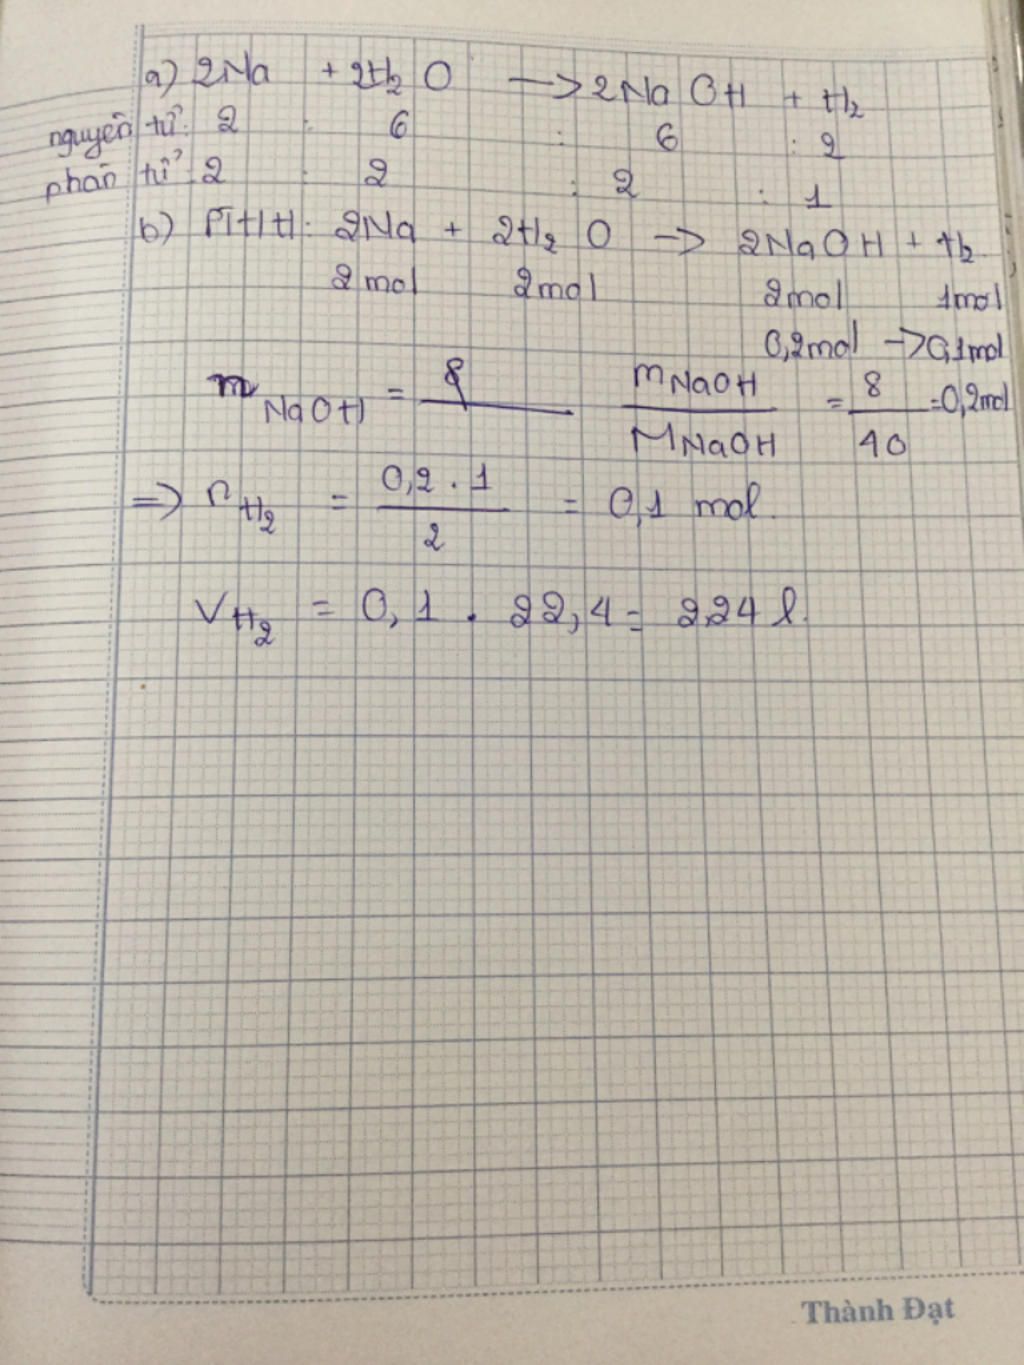 a) 2Na + 2H₂O → 2NaOH + H₂
nguyên tử: 2 : 6 : 6 : 2
phân tử: 2 : 2 : 2 : 1
b) PTHH: 2Na + 2H₂O → 2NaOH + H₂
2mol 2mol 2mol 1mol
0,2mol → 0,1mol
m NaOH = 8/ mNaOH/MNaOH = 8/40 = 0,2mol
=> nH₂ = 0,2 . 1/2 = 0,1 mol.
VH₂ = 0,1 . 22,4 = 2,24 l.
Thành Đạt